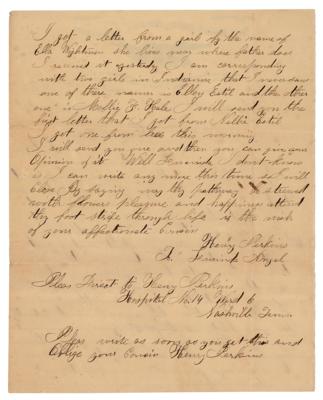 I got a letter from a girl by the name of
Ella she lives near where father does
I received it yesterday I am corresponding
with two girls in Indiana that I never saw
one of there names is Ellby Estil and the other
one is Mollie F Hale I will send you the
first letter that I got from Nellie Estil
I got one from her this morning
I will send you and then you can give me
Opinion of it Well I dont know
as I can write any more this time so I will
close by saying may thy pathway be strewed
with flowers pleasure and happiness attend
thy foot steps through life is the wish
of your affectionate Cousin
Henry Perkins
To
Pleas Direct to Henry Perkins
Hospital No. 14 Ward 6
Nashville Tenn.
Pleas write as soon as you get this and
Oblige your Cousin Henry Perkins